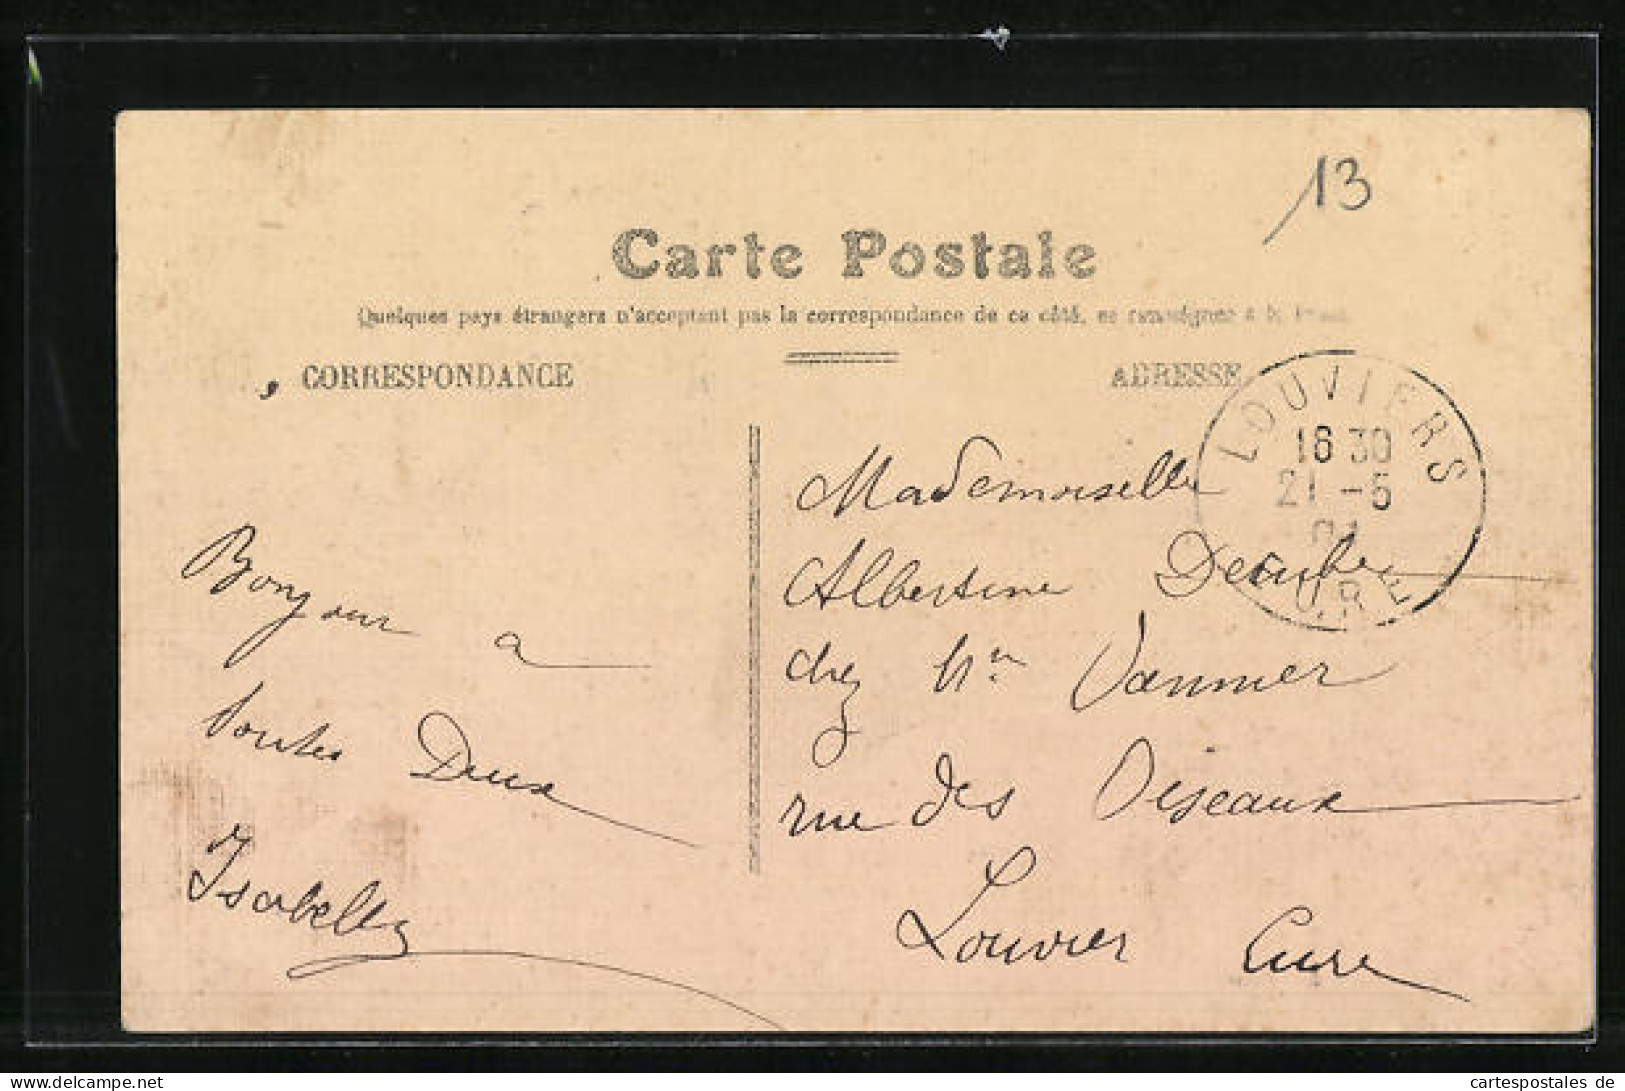 13
Carte Postale
Quelques pays étrangers n'acceptent pas la correspondance de ce côté, se renseigner à la Poste
CORRESPONDANCE
ADRESSE
LOUVIERS
16 30
21 -6
EURE
Bonjour a
toutes Deux
Isabelle
Mademoiselle
Albertine
chez Vannier
rue des Oiseaux
Louvier Eure
cartespostales de
www.cartespostales.de